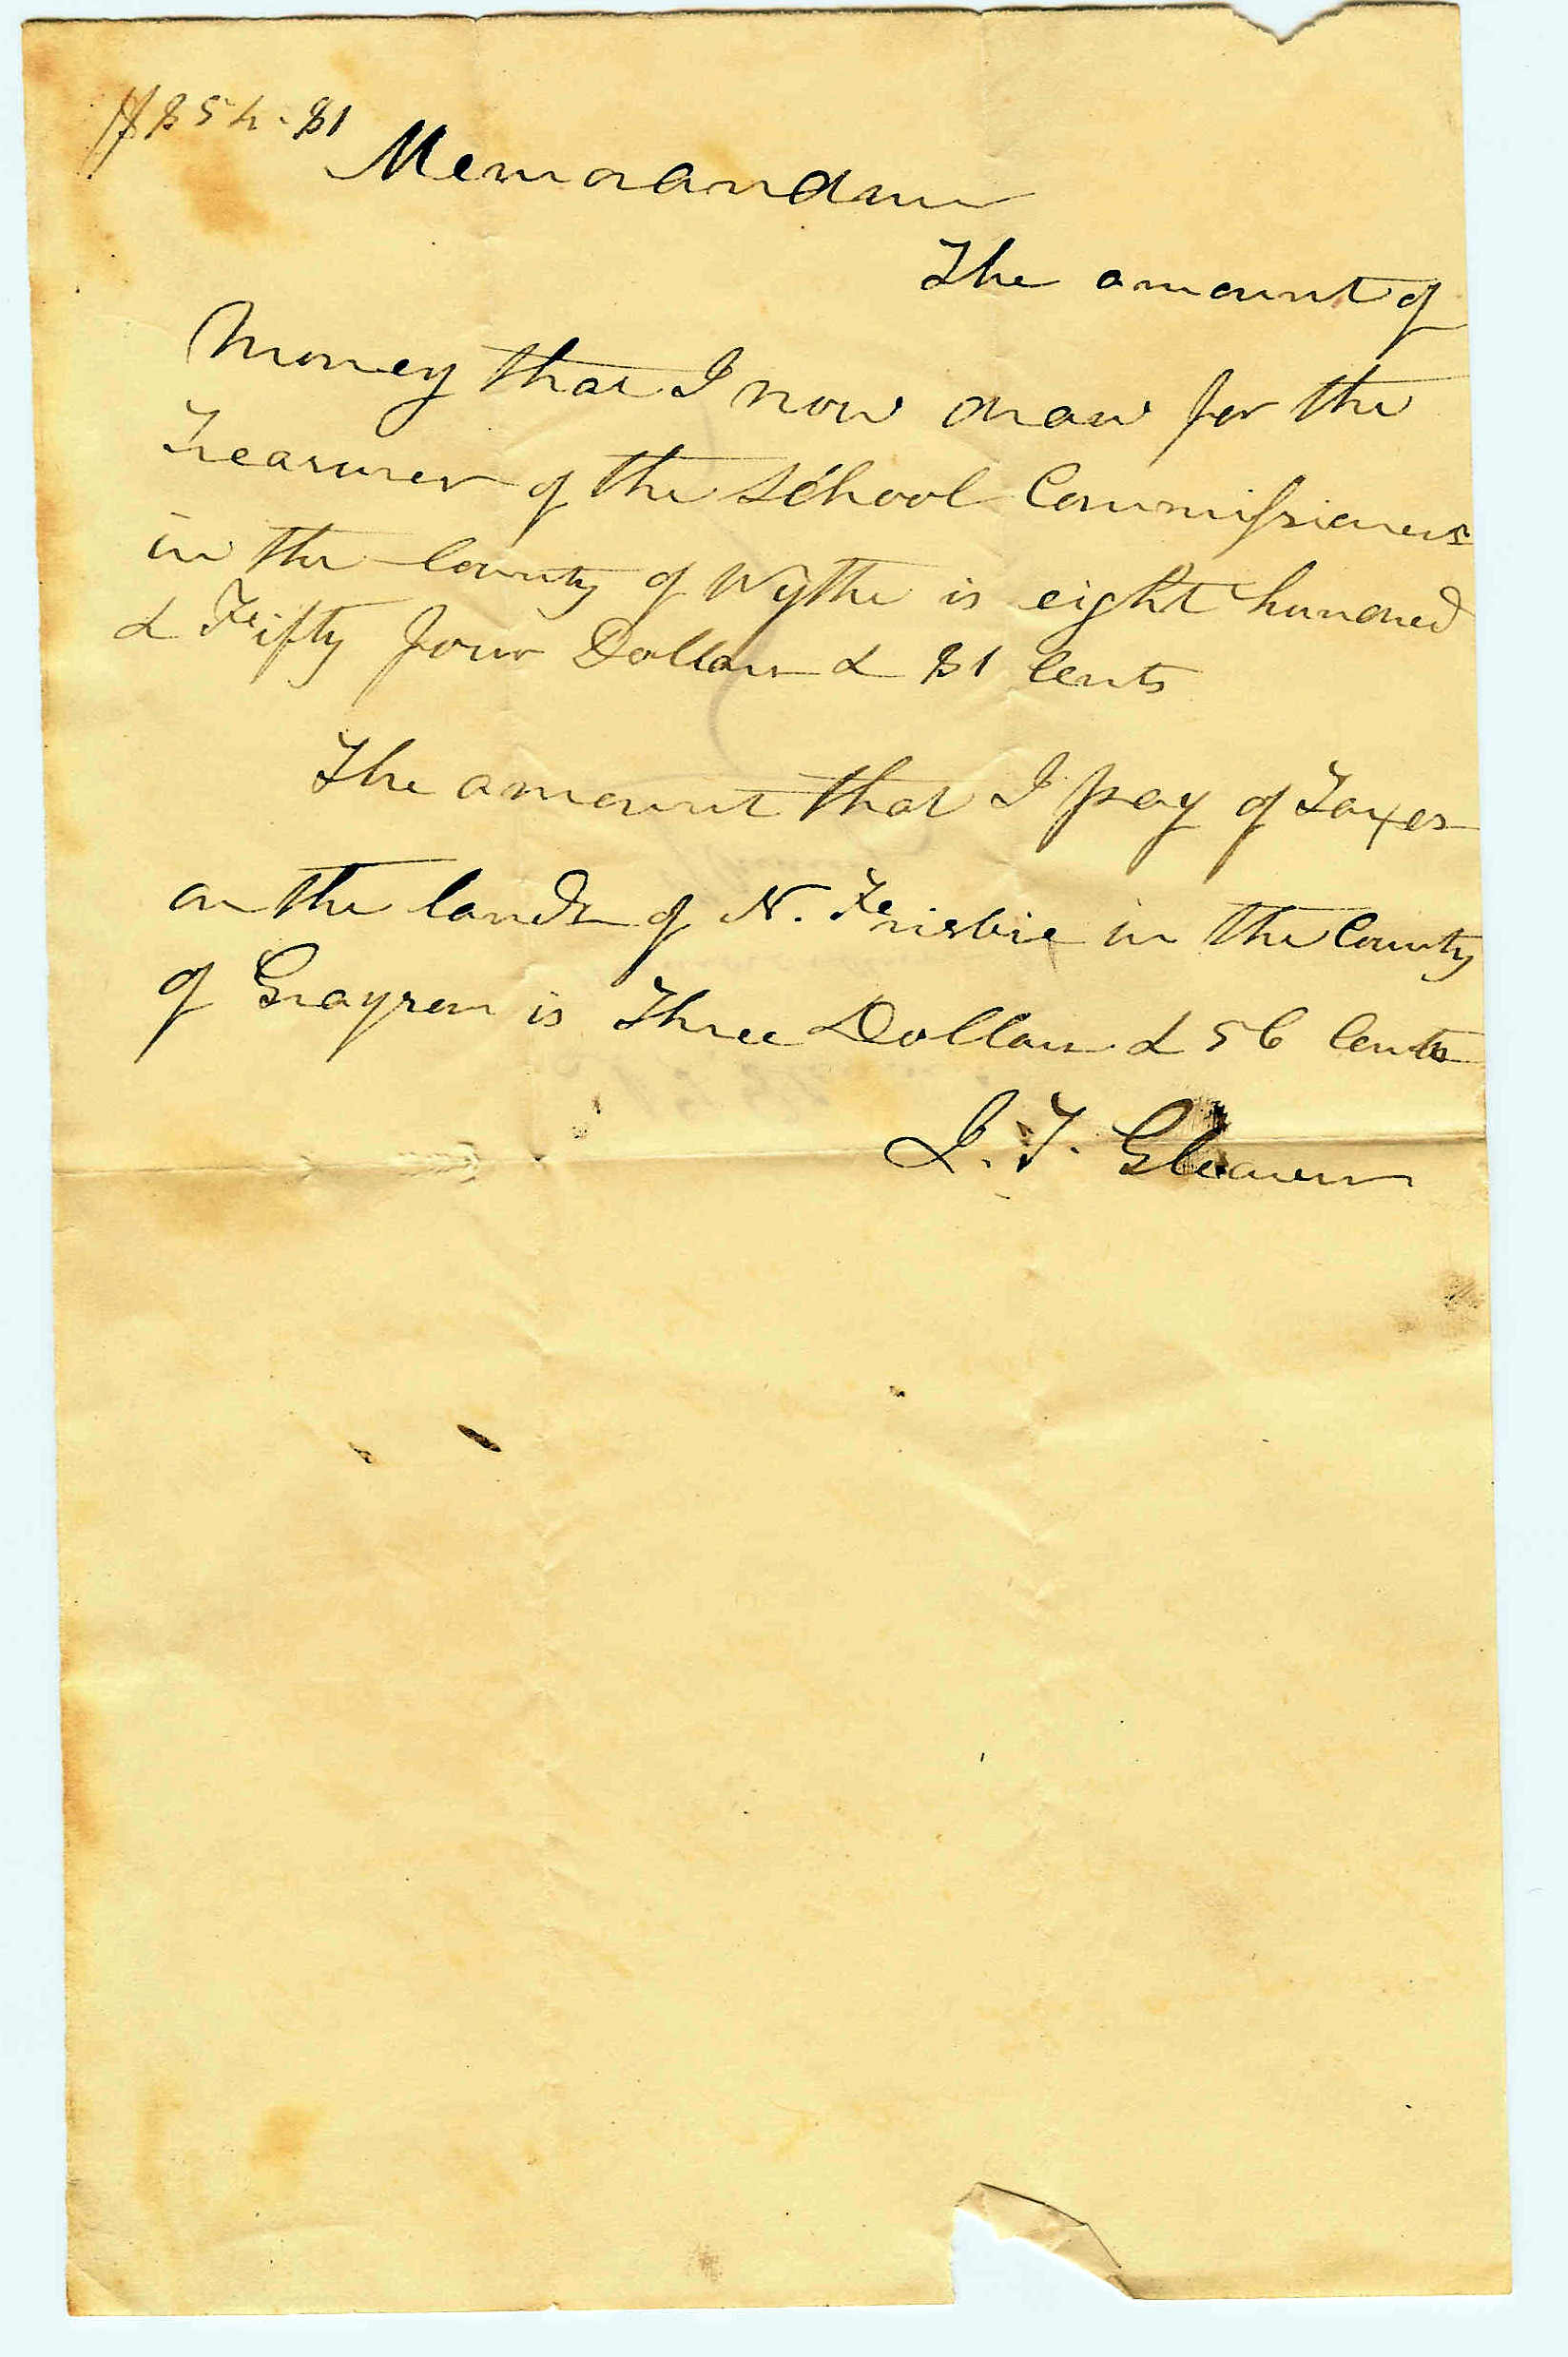 $854.81
Memorandum
The amount of
Money that I now draw for the
Treasurer of the School Commissioners
in the County of Wythe is eight hundred
& Fifty four Dollars & 81 Cents
The amount that I pay of Taxes
on the lands of N. Frisbie in the County
of Grayson is Three Dollars & 56 Cents
J. T. Gleaves